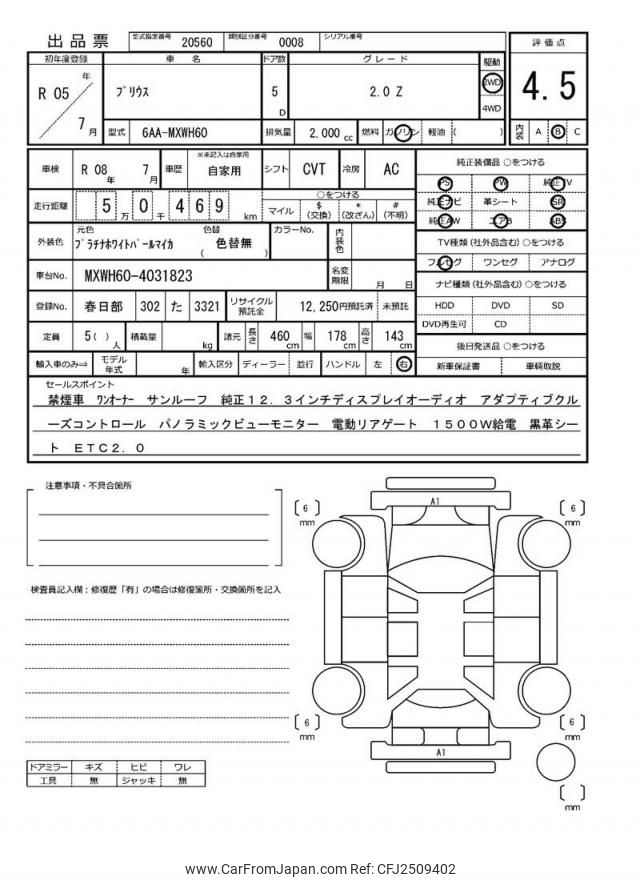 出品票
型式指定番号 20560 類別区分番号 0008 シリアル番号
初年度登録 車名 ドア数 グレード 駆動 評価点
R 05 年 7月 ﾌﾟﾘｳｽ 5 D 2.0 Z 2WD 4WD 4.5
型式 6AA-MXWH60 排気量 2,000 cc 燃料 ガソリン 軽油 ( ) 内装 A B C
車検 R 08 年 7 月 車歴 ※未記入は自家用 自家用 シフト CVT 冷房 AC
走行距離 5 万 0 千 4 6 9 km ○をつける マイル $ (交換) * (改ざん) # (不明)
外装色 元色 ﾌﾟﾗﾁﾅﾎﾜｲﾄﾊﾟｰﾙﾏｲｶ 色替 ( 色替無 ) カラーNo. 内装色
車台No. MXWH60-4031823 名変期限 月 日
登録No. 春日部 302 た 3321 リサイクル預託金 12,250円預託済 未預託
定員 5( ) 人 積載量 kg 諸元 長さ 460 cm 幅 178 cm 高さ 143 cm
輸入車のみ⇨ モデル年式 年 輸入区分 ディーラー 並行 ハンドル 左 右
純正装備品 ○をつける
PS PW 純正TV
純正ナビ 革シート SR
純正AW エアB ABS
TV種類 (社外品含む) ○をつける
フルセグ ワンセグ アナログ
ナビ種類 (社外品含む) ○をつける
HDD DVD SD
DVD再生可 CD
後日発送品 ○をつける
新車保証書 車輌取説
セールスポイント
禁煙車 ﾜﾝｵｰﾅｰ サンルーフ 純正１２．３インチディスプレイオーディオ アダプティブクル
ーズコントロール パノラミックビューモニター 電動リアゲート １５００Ｗ給電 黒革シー
ト ＥＴＣ２．０
注意事項・不具合箇所
検査員記入欄：修復歴「有」の場合は修復箇所・交換箇所を記入
ドアミラー キズ ヒビ ワレ
工具 無 ジャッキ 無
A1
( 6 ) mm
( 6 ) mm
( 6 ) mm
( 6 ) mm
A1
( ) mm
www.CarFromJapan.com Ref: CFJ2509402